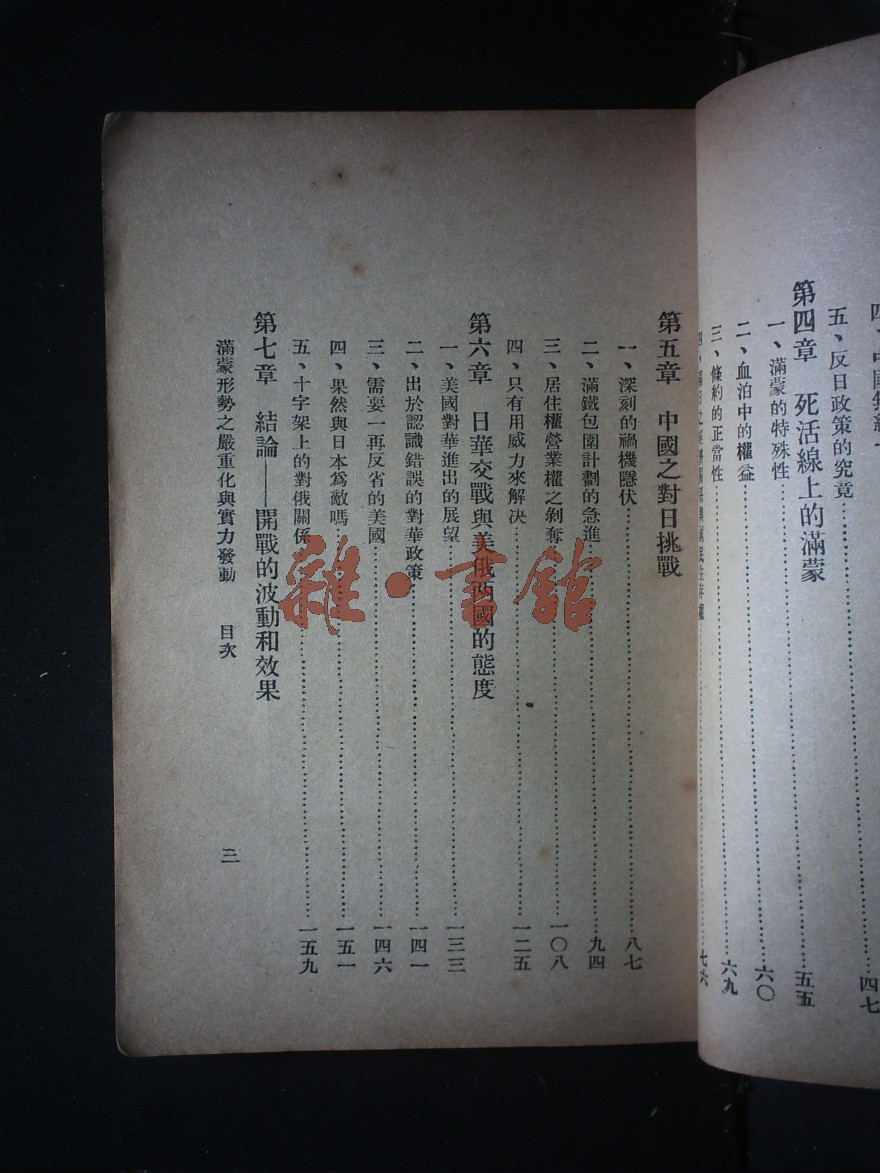 五、反日政策的究竟……四七
第四章　死活線上的滿蒙
一、滿蒙的特殊性……五五
二、血泊中的權益……六〇
三、條約的正當性……六九
七六
第五章　中國之對日挑戰
一、深刻的禍機隱伏……八七
二、滿鐵包圍計劃的急進……九四
三、居住權營業權之剝奪……一〇八
四、只有用威力來解決……一二五
第六章　日華交戰與美俄兩國的態度
一、美國對華進出的展望……一三三
二、出於認識錯誤的對華政策……一四一
三、需要一再反省的美國……一四六
四、果然與日本爲敵嗎……一五一
五、十字架上的對俄關係……一五九
第七章　結論——開戰的波動和效果
滿蒙形勢之嚴重化與實力發動　目次
三
雜·書館